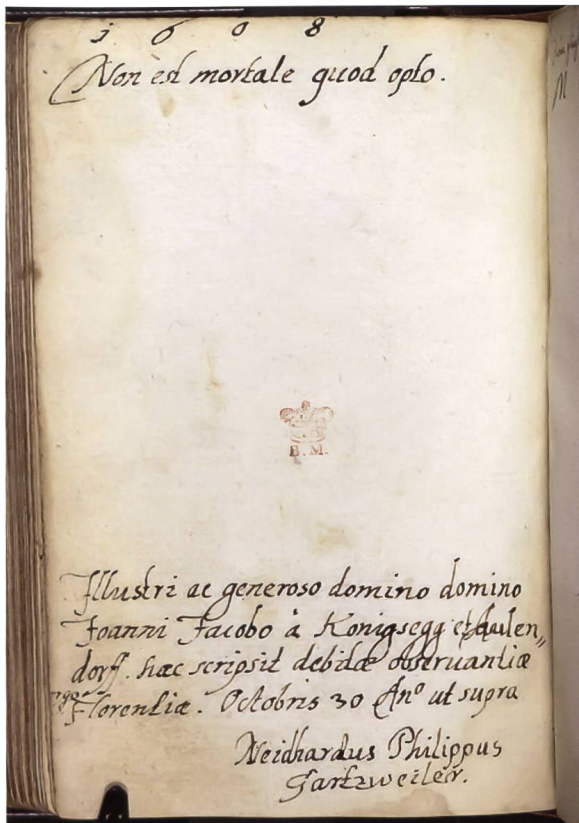 1 6 0 8
Non est mortale quod opto.
B. M.
Illustri ac generoso domino domino
Joanni Jacobo à Konigsegg et Aulen„
dorff. hæc scripsit debitæ observantiæ
ergo Florentiæ. Octobris 30 An° ut supra
Neidhardus Philippus
Gartzweiler.